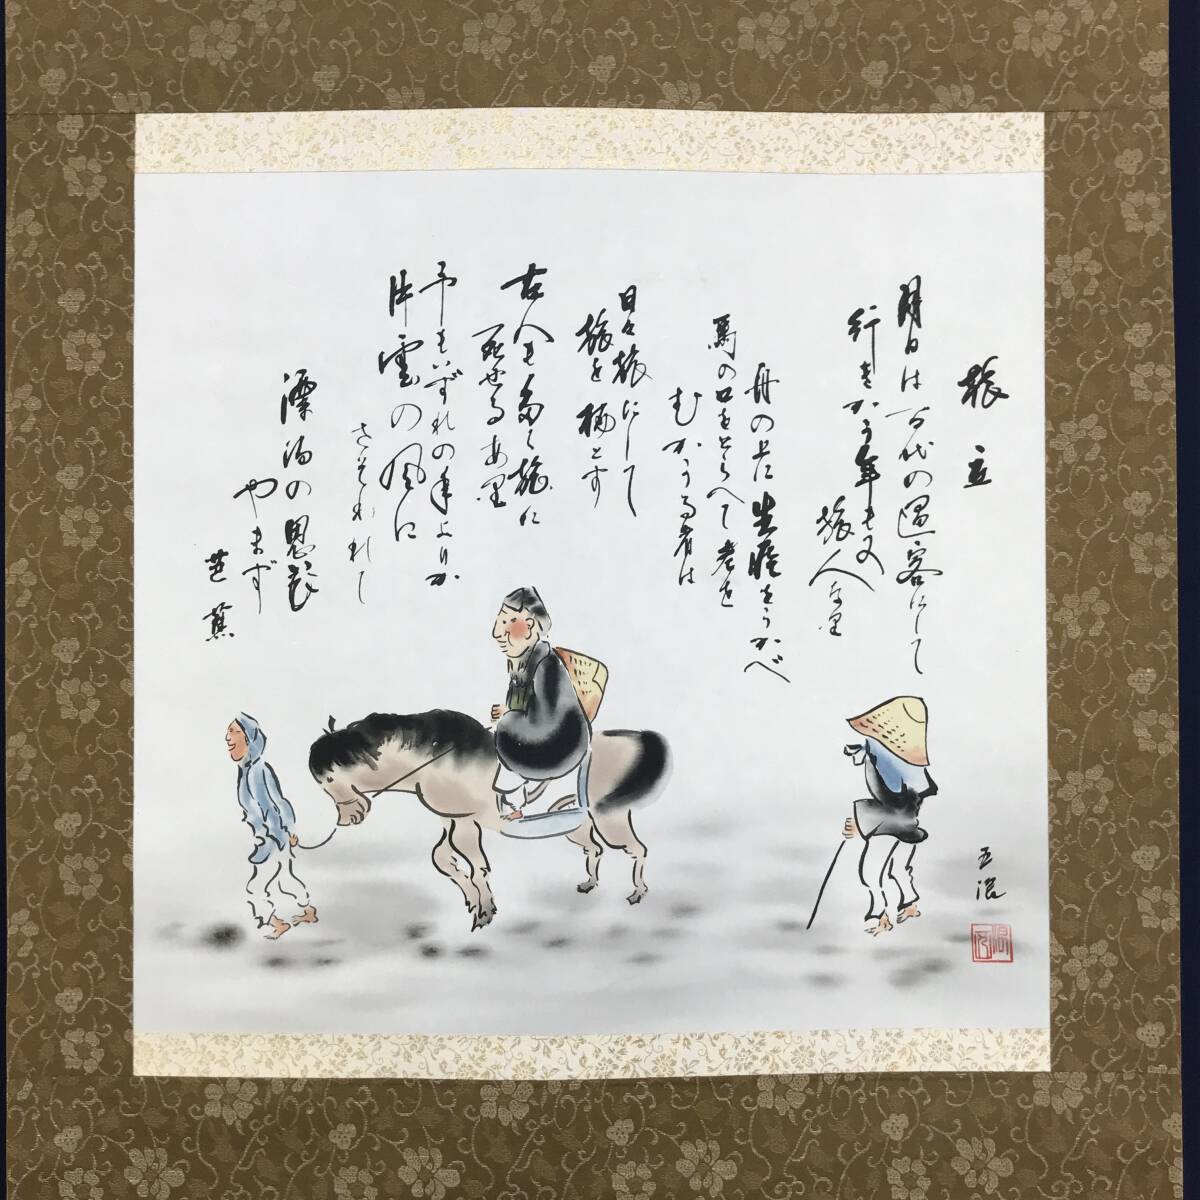 旅立
月日は百代の過客にして
行きかう年も又
旅人なり
舟の上に生涯をうかべ
馬の口をとらへて老を
むかうる者は
日々旅にして
旅を栖とす
古人も多く旅に
死せるあり
予もいずれの年よりか
片雲の風に
さそわれて
漂泊の思ひ
やまず
芭蕉